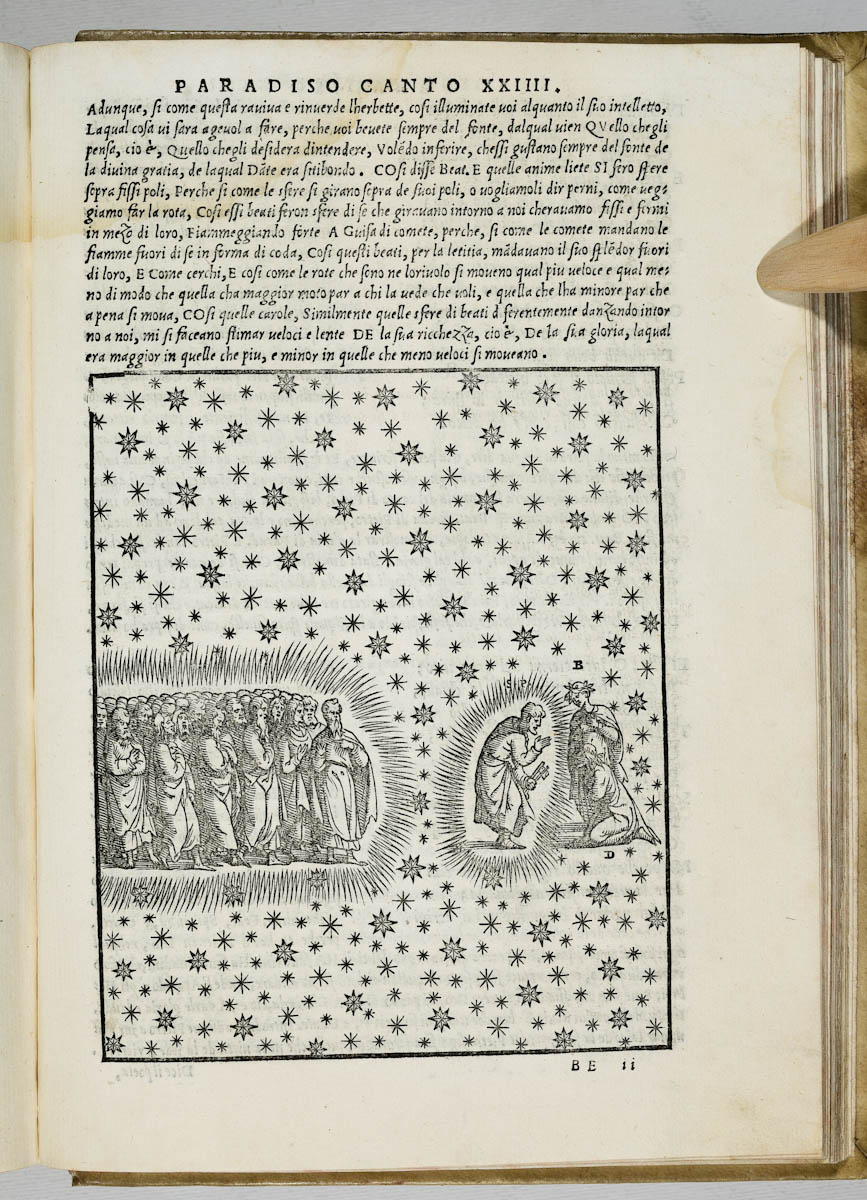 PARADISO CANTO XXIIII.
Adunque, si come questa raviva e rinverde lherbette, cosi illuminate voi alquanto il suo intelletto,
Laqual cosa vi sara agevol a fare, perche voi bevete sempre del fonte, dalqual vien QVello chegli
pensa, cio è, Quello chegli desidera dintendere, Volēdo inferire, chessi gustano sempre del fonte de
la divina gratia, de laqual Dāte era sitibondo. COsi disse Beat. E quelle anime liete SI fero spere
sopra fissi poli, Perche si come le spere si girano sopra de suoi poli, o vogliamoli dir perni, come veg-
giamo far la rota, Cosi essi beati feron spere di se che giravano intorno a noi cheravamo fissi e fermi
in mezo di loro, Fiammeggiando forte A Guisa di comete, perche, si come le comete mandano le
fiamme fuori di se in forma di coda, Cosi questi beati, per la letitia, mādavano il suo splēdor fuori
di loro, E Come cerchi, E cosi come le rote che sono ne lorivolo si moveno qual piu veloce e qual me-
no di modo che quella cha maggior moto par a chi la vede che voli, e quella che lha minore par che
a pena si mova, COsi quelle carole, Similmente quelle spere di beati d ferentemente danzando intor
no a noi, mi si faceano stimar veloci e lente DE la sua ricchezza, cio è, De la sua gloria, laqual
era maggior in quelle che piu, e minor in quelle che meno veloci si moveano.
B
S P
D
BE ii